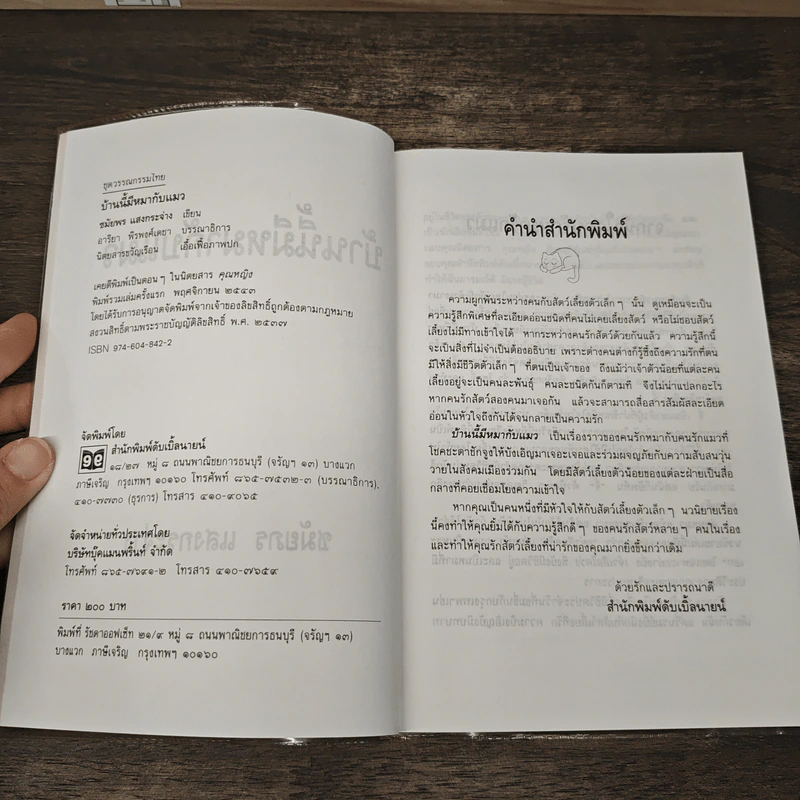 ชุดวรรณกรรมไทย
บ้านนี้มีหมากับแมว
ชมัยพร แสงกระจ่าง เขียน
อารียา พีรพงศ์เดชา บรรณาธิการ
นิตยสารขวัญเรือน เอื้อเฟื้อภาพปก
เคยตีพิมพ์เป็นตอนๆ ในนิตยสาร คุณหญิง
พิมพ์รวมเล่มครั้งแรก พฤศจิกายน ๒๕๔๓
โดยได้รับการอนุญาตจัดพิมพ์จากเจ้าของลิขสิทธิ์ถูกต้องตามกฎหมาย
สงวนสิทธิ์ตามพระราชบัญญัติลิขสิทธิ์ พ.ศ. ๒๕๓๗
ISBN 974-604-842-2
จัดพิมพ์โดย
สำนักพิมพ์ดับเบิ้ลนายน์
๑๘/๒๗ หมู่ ๘ ถนนพาณิชยการธนบุรี (จรัญฯ ๑๓) บางแวก
ภาษีเจริญ กรุงเทพฯ ๑๐๑๖๐ โทรศัพท์ ๘๖๕-๗๕๓๒-๓ (บรรณาธิการ),
๔๑๐-๗๗๓๐ (ธุรการ) โทรสาร ๔๑๐-๙๐๖๕
จัดจำหน่ายทั่วประเทศโดย
บริษัทบุ๊คแมนพริ้นท์ จำกัด
โทรศัพท์ ๘๖๕-๗๖๙๑-๒ โทรสาร ๔๑๐-๗๖๕๙
ราคา ๒๐๐ บาท
พิมพ์ที่ รัชดาออฟเซ็ท ๒๑/๙ หมู่ ๘ ถนนพาณิชยการธนบุรี (จรัญฯ ๑๓)
บางแวก ภาษีเจริญ กรุงเทพฯ ๑๐๑๖๐
คำนำสำนักพิมพ์
ความผูกพันระหว่างคนกับสัตว์เลี้ยงตัวเล็กๆ นั้น ดูเหมือนจะเป็น
ความรู้สึกพิเศษที่ละเอียดอ่อนชนิดที่คนไม่เคยเลี้ยงสัตว์ หรือไม่ชอบสัตว์
เลี้ยงไม่มีทางเข้าใจได้ หากระหว่างคนรักสัตว์ด้วยกันแล้ว ความรู้สึกนี้
จะเป็นสิ่งที่ไม่จำเป็นต้องอธิบาย เพราะต่างคนต่างก็รู้ซึ้งถึงความรักที่ตน
มีให้สิ่งมีชีวิตตัวเล็กๆ ที่ตนเป็นเจ้าของ ถึงแม้ว่าเจ้าตัวน้อยที่แต่ละคน
เลี้ยงอยู่จะเป็นคนละพันธุ์ คนละชนิดกันก็ตามที จึงไม่น่าแปลกอะไร
หากคนรักสัตว์สองคนมาเจอกัน แล้วจะสามารถสื่อสารสัมผัสละเอียด
อ่อนในหัวใจถึงกันได้จนกลายเป็นความรัก
บ้านนี้มีหมากับแมว เป็นเรื่องราวของคนรักหมากับคนรักแมวที่
โชคชะตาชักจูงให้บังเอิญมาเจอะเจอและร่วมผจญภัยกับความสับสนวุ่น
วายในสังคมเมืองร่วมกัน โดยมีสัตว์เลี้ยงตัวน้อยของแต่ละฝ่ายเป็นสื่อ
กลางที่คอยเชื่อมโยงความเข้าใจ
หากคุณเป็นคนหนึ่งที่มีหัวใจให้กับสัตว์เลี้ยงตัวเล็กๆ นวนิยายเรื่อง
นี้คงทำให้คุณยิ้มได้กับความรู้สึกดีๆ ของคนรักสัตว์หลายๆ คนในเรื่อง
และทำให้คุณรักสัตว์เลี้ยงที่น่ารักของคุณมากยิ่งขึ้นกว่าเดิม
ด้วยรักและปรารถนาดี
สำนักพิมพ์ดับเบิ้ลนายน์